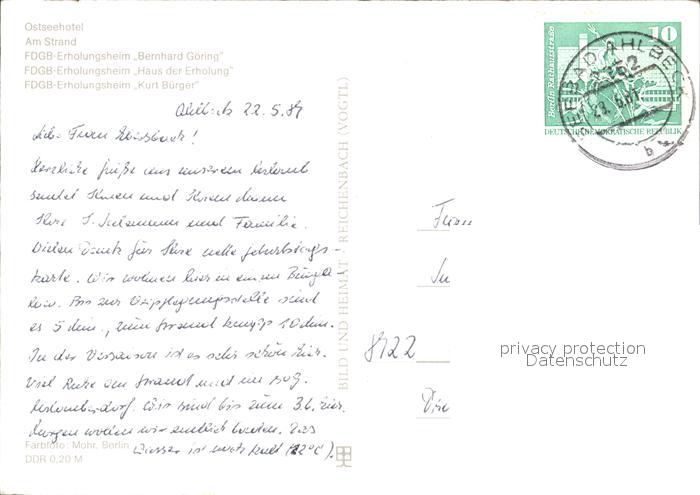 Ostseehotel
Am Strand
FDGB-Erholungsheim „Bernhard Göring"
FDGB-Erholungsheim „Haus der Erholung"
FDGB-Erholungsheim „Kurt Bürger"
22.5.
Liebe Frau
Herzliche Grüße aus unserem Urlaub
sendet Ihnen und Ihrem
Ihre und Familie.
Vielen Dank für Ihre nette Geburtstags-
karte. Wir wohnen hier in einem Bunga-
low. Bis zur Verpflegungsstelle sind
es 5 Min., zum Strand knapp 10 Min.
In der Vorsaison ist es sehr schön hier.
Viel Ruhe am Strand und im sog.
Urlauberdorf. Wir sind bis zum 3.6. hier.
Morgen wollen wir endlich baden. Das
Wasser ist noch kalt (12°C).
Farbfoto: Mohr, Berlin
DDR 0,20 M
BILD UND HEIMAT REICHENBACH (VOGTL)
Berlin, Rathausstraße
10
DEUTSCHE DEMOKRATISCHE REPUBLIK
SEEBAD AHLBECK
2252
b
Frau
In
8122
privacy protection
Datenschutz